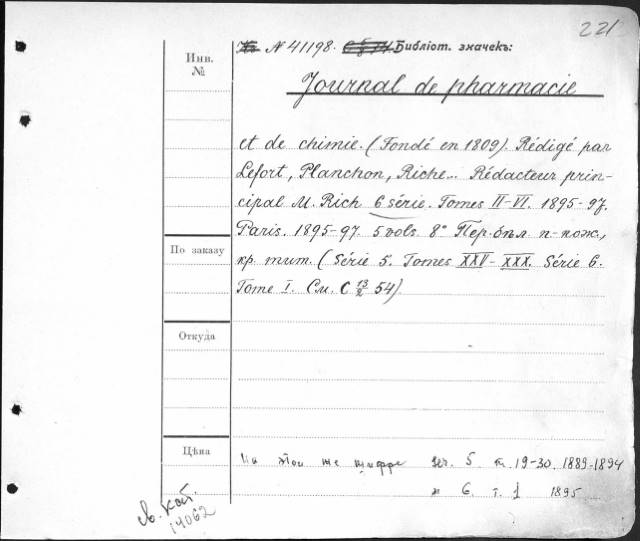 221
№ 41198. Библіот. значекъ:
Инв.
№
Journal de pharmacie
et de chimie. (Fondé en 1809). Rédigé par
Lefort, Planchon, Riche... Rédacteur prin-
cipal M. Rich 6 série. Tomes II-VI. 1895-97.
Paris. 1895-97. 5 vols. 8° Пер. бѣл. п-кож.,
По заказу
кр. тит. (Série 5. Tomes XXV-XXX. Série 6.
Tome I. См. С 13/2 54)
Откуда
Цѣна
На том же шифре ser. 5 т. 19-30. 1889-1894
" 6. т. 1 1895
св. кат.
14062